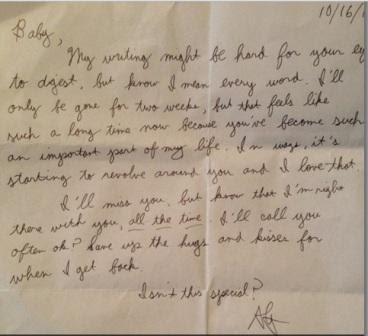 10/16/
Baby,
My writing might be hard for your ey
to digest, but know I mean every word. I'll
only be gone for two weeks, but that feels like
such a long time now because you've become such
an important part of my life. In ways, it's
starting to revolve around you and I love that.
I'll miss you, but know that I'm right
there with you, all the time. I'll call you
often ok? Save up the hugs and kisses for
when I get back.
Isn't this special?